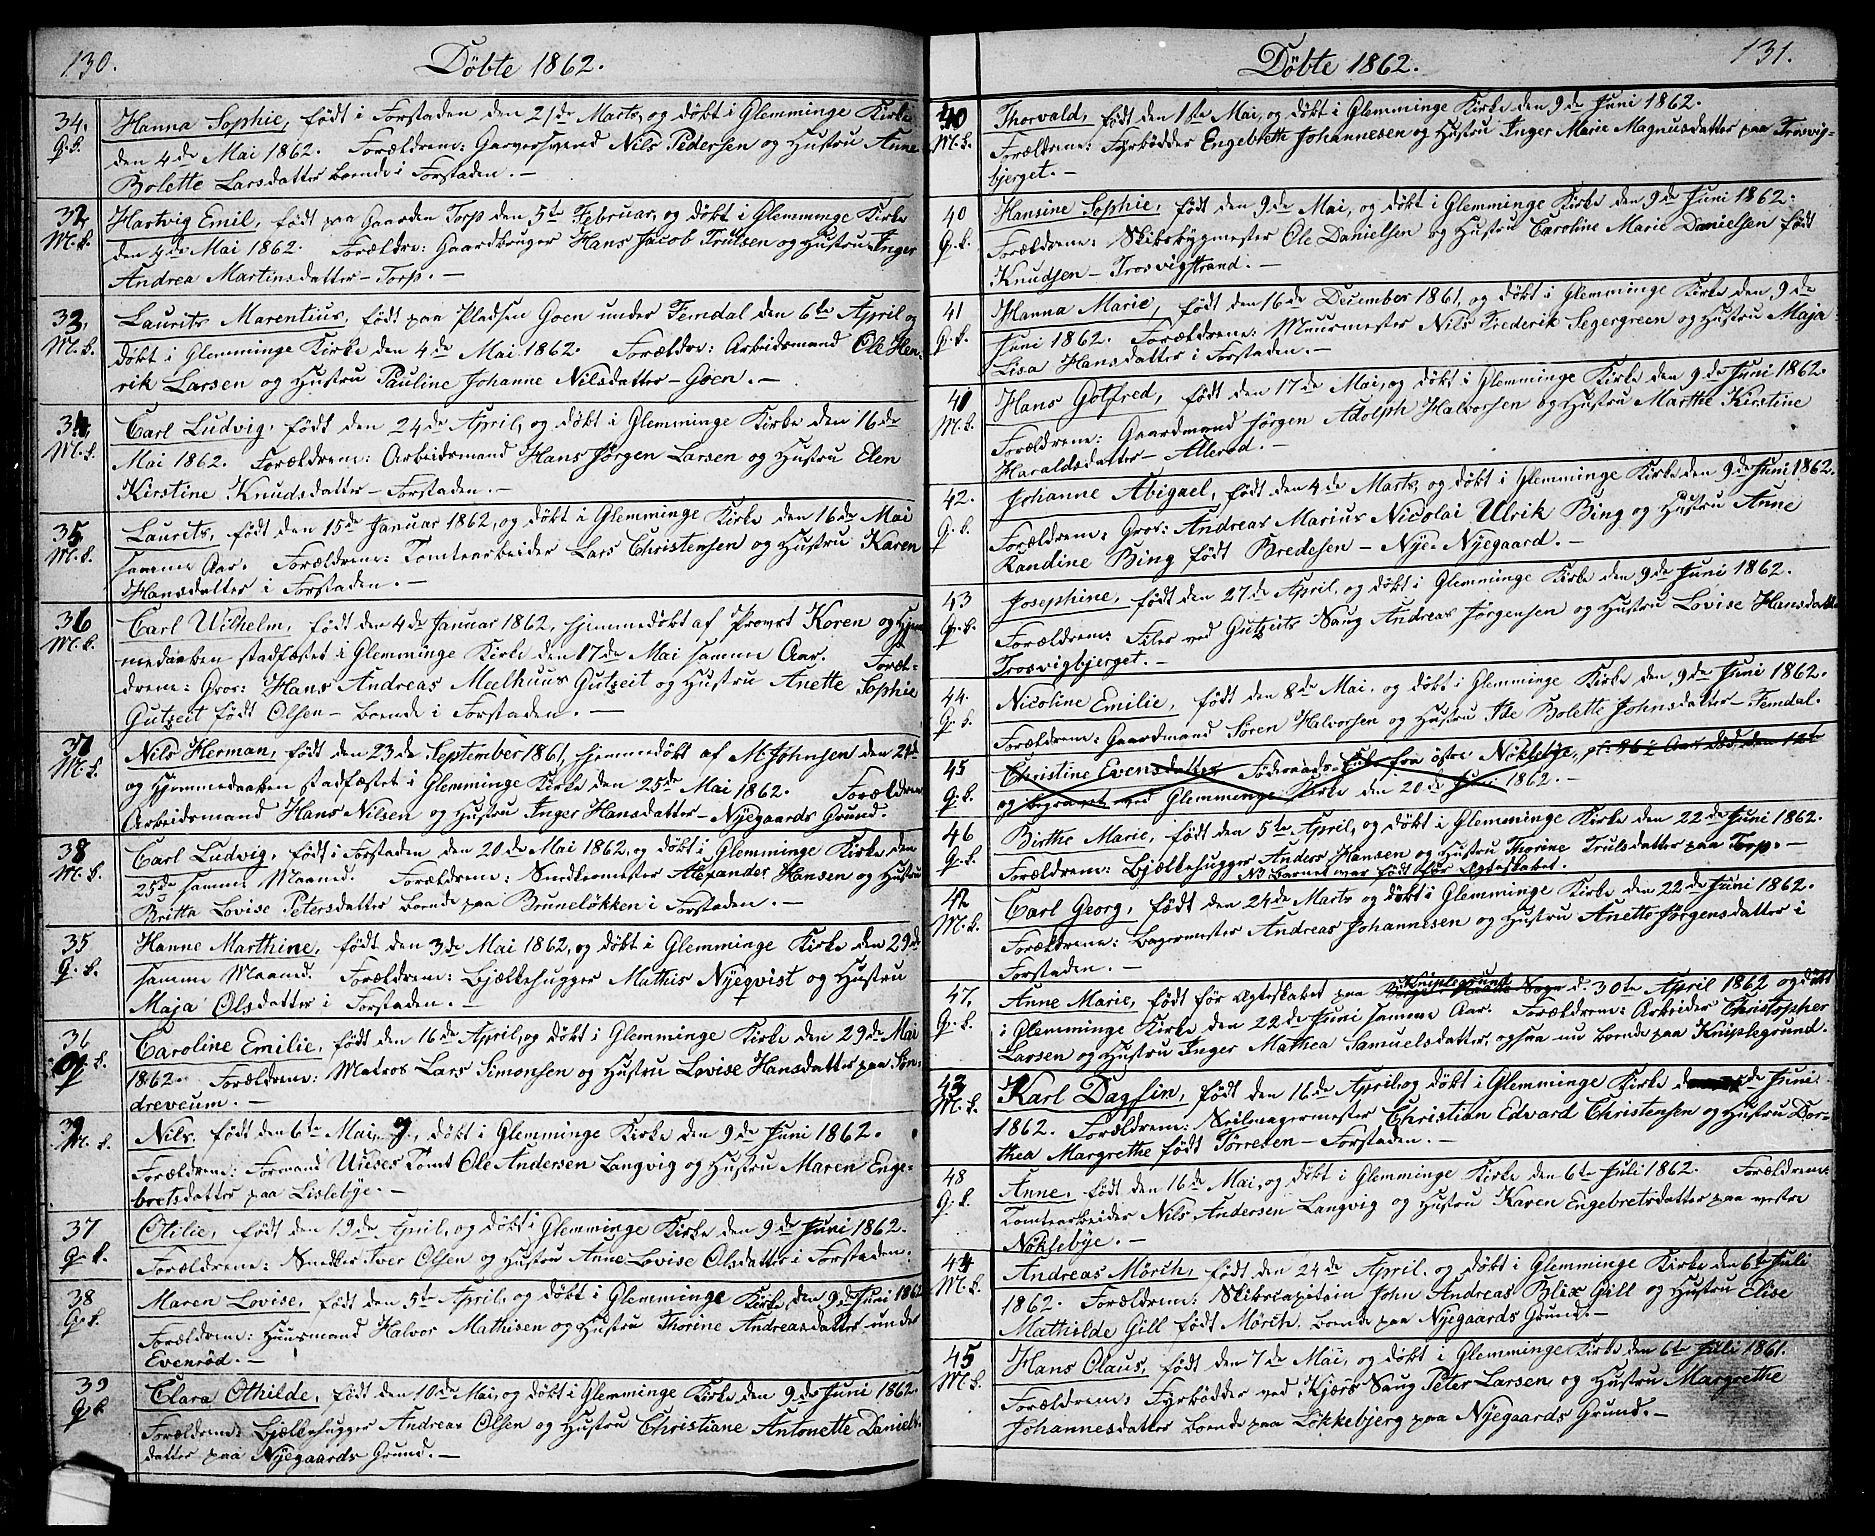 130.
Döbte 1862.
34. Hanna Sophie, født i Forstaden den 21de Marts, og døbt i Glemminge Kirke
Q.k. den 4de Mai 1862. Forældrene: Garversvend Nils Pedersen og Hustru Anne
Bolette Larsdatter boende i Forstaden. —
32 Hartvig Emil, født paa Gaarden Torp den 5te Februar, og døbt i Glemminge Kirke
M.k. den 4de Mai 1862. Forældre: Gaardbruger Hans Jacob Trulsen og Hustru Inger
Andrea Martinsdatter — Torp. —
33. Laurits Marentius, født paa Pladsen Goen under Femdal den 6te April og
M.k. døbt i Glemminge Kirke den 4de Mai 1862. Forældre: Arbeidsmand Ole Hen-
rik Larsen og Hustru Pauline Johanne Nilsdatter — Goen. —
34 Carl Ludvig, født den 24de April, og døbt i Glemminge Kirke den 16de
M.k. Mai 1862. Forældrene: Arbeidsmand Hans Jørgen Larsen og Hustru Elen
Kirstine Knudsdatter — Forstaden. —
35 Laurits, født den 15de Januar 1862, og døbt i Glemminge Kirke den 16de Mai
M.k. samme Aar. Forældrene: Tomtearbeider Lars Christensen og Hustru Karen
Hansdatter i Forstaden. —
36 Carl Wilhelm, født den 4de Januar 1862, hjemmedøbt af Provst Koren og Hjem-
M.k. medaaben stadfæstet i Glemminge Kirke den 17de Mai samme Aar. Foræl-
drene: Gros: Hans Andreas Mælhuus Gutzeit og Hustru Anette Sophie
Gutzeit født Olsen — boende i Forstaden. —
37 Nils Herman, født den 23de September 1861, hjemmedøbt af M. Johnsen den 29de
M.k. og Hjemmedaaben stadfæstet i Glemminge Kirke den 25de Mai 1862. Forældrene
Arbeidsmand Hans Nilsen og Hustru Inger Hansdatter — Nyegaards Grund.
38 Carl Ludvig, født i Forstaden den 20de Mai 1862, og døbt i Glemminge Kirke den
M.k. 25de samme Maaned. Forældrene: Snedkermester Alexander Hansen og Hustru
Britta Lovise Petersdatter boende paa Bruneløkken i Forstaden. —
35 Hanne Marthine, født den 3de Mai 1862, og døbt i Glemminge Kirke den 29de
Q.k. samme Maaned. Forældrene: Bjælkehugger Mathis Nyeqvist og Hustru
Maja Olsdatter i Forstaden. —
36 Caroline Emilie, født den 16de April, og døbt i Glemminge Kirke den 29de Mai
Q.k. 1862. Forældrene: Matros Lars Simonsen og Hustru Lovise Hansdatter paa Søn-
dreveum. —
39 Nils, født den 6te Mai, og døbt i Glemminge Kirke den 9de Juni 1862.
M.k. Forældrene: Formand Uieses Tomt Ole Andersen Langvig og Hustru Maren Enge-
bretsdatter paa Lislebye. —
37 Otilie, født den 19de April, og døbt i Glemminge Kirke den 9de Juni 1862.
Q.k. Forældrene: Snedker Iver Olsen og Hustru Anne Lovise Olsdatter i Forstaden.
38 Maren Lovise, født den 5te April, og døbt i Glemminge Kirke den 9de Juni 1862
Q.k. Forældrene: Huusmand Halvor Mathisen og Hustru Thorine Andreasdatter under
Evenrød. —
39 Clara Othilde, født den 10de Mai, og døbt i Glemminge Kirke den 9de Juni 1862.
Q.k. Forældrene Bjælkehugger Andreas Olsen og Hustru Christiane Antonette Daniels-
datter paa Nyegaards Grund. —
131.
Döbte 1862.
40 Thorvald, født den 1ste Mai, og døbt i Glemminge Kirke den 9de Juni 1862.
M.k. Forældrene: Fyrbødder Engebreth Johannesen og Hustru Inger Marie Magnusdatter paa Trosvig-
bjerget. —
40 Hansine Sophie, født den 9de Mai, og døbt i Glemminge Kirke den 9de Juni 1862.
Q.k. Forældrene: Skibsbygmester Ole Danielsen og Hustru Caroline Marie Danielsen født
Knudsen — Trosvigstrand. —
41 Hanna Marie, født den 16de December 1861, og døbt i Glemminge Kirke den 9de
Q.k. Juni 1862. Forældrene: Muurmester Nils Frederik Segergreen og Hustru Maja
Lisa Hansdatter i Forstaden. —
41 Hans Gotfred, født den 17de Mai, og døbt i Glemminge Kirke den 9de Juni 1862.
M.k. Forældrene: Gaardmand Jørgen Adolph Halvorsen og Hustru Marthe Kirstine
Haraldsdatter — Allerød. —
42. Johanne Abigael, født den 4de Marts, og døbt i Glemminge Kirke den 9de Juni 1862.
Q.k. Forældrene: Gros: Andreas Marius Nicolai Ulrik Bing og Hustru Anne
Kandine Bing født Bredesen — Nye-Nyegaard. —
43 Josephine, født den 27de April, og døbt i Glemminge Kirke den 9de Juni 1862.
Q.k. Forældrene: Filer ved Gutzeits Saug Andreas Jørgensen og Hustru Lovise Hansdatter
Trosvigbjerget. —
44. Nicoline Emilie, født den 8de Mai, og døbt i Glemminge Kirke den 9de Juni 1862.
Q.k. Forældrene: Gaardmand Søren Halvorsen og Hustru Ide Bolette Johnsdatter — Femdal.
45 Christine Evensdatter Føderaads fra østre Nøklebye, 86½ Aar død den 12te
Q.k. og begravet ved Glemminge Kirke den 20de Juni 1862. —
46 Birthe Marie, født den 5te April, og døbt i Glemminge Kirke den 22de Juni 1862.
Q.k. Forældrene: Bjælkehugger Anders Hansen og Hustru Thorine Trulsdatter paa Torp. —
NB barnet var født før Ægteskabet.
42 Carl Georg, født den 24de Marts og døbt i Glemminge Kirke den 22de Juni 1862.
M.k. Forældrene: Bagermester Andreas Johannesen og Hustru Anette Jørgensdatter i
Forstaden. —
Kniplegrund
47, Anne Marie, født før Ægteskabet paa d. 30te April 1862 og døbt
Q.k. i Glemminge Kirke den 22de Juni samme Aar. Forældrene: Arbeider Christopher
Larsen og Hustru Inger Mathea Samuelsdatter, ogsaa nu boende paa Kniplegrund.
43 Karl Dagfin, født den 16de April, og døbt i Glemminge Kirke de Juni
M.k. 1862. Forældrene: Seilmagermester Christian Edvard Christensen og Hustru Dor-
thea Margrethe født Tørresen — Forstaden. —
48 Anne, født den 16de Mai, og døbt i Glemminge Kirke den 6te Juli 1862. Forældrene:
Q.k. Tomtearbeider Nils Andersen Langvig og Hustru Karen Engebretsdatter paa vestre
Nøklebye. —
44 Andreas Mörch, født den 24de April, og døbt i Glemminge Kirke den 6te Juli
M.k. 1862. Forældrene: Skibscapitain John Andreas Blix Gill og Hustru Elise
Mathilde Gill født Mörch, boende paa Nyegaards Grund. —
45 Hans Olaus, født den 7de Mai, og døbt i Glemminge Kirke den 6te Juli 1861.
M.k. Forældrene: Fyrbødder ved Kjærs Saug Peter Larsen og Hustru Margrethe
Johannesdatter boende paa Løkkebjerg paa Nyegaards Grund. —